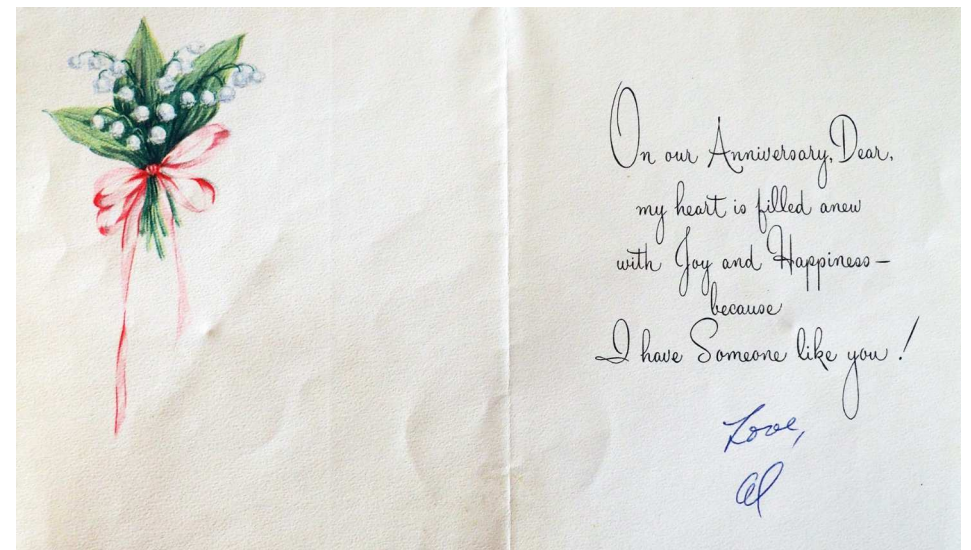 On our Anniversary, Dear,
my heart is filled anew
with Joy and Happiness—
because
I have Someone like you!
Love,
Al